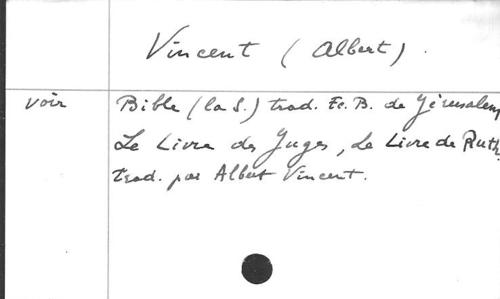 Vincent (Albert).
voir Bible (la S.) trad. Ec. B. de Jérusalem
Le Livre des Juges, Le Livre de Ruth,
trad. par Albert Vincent.